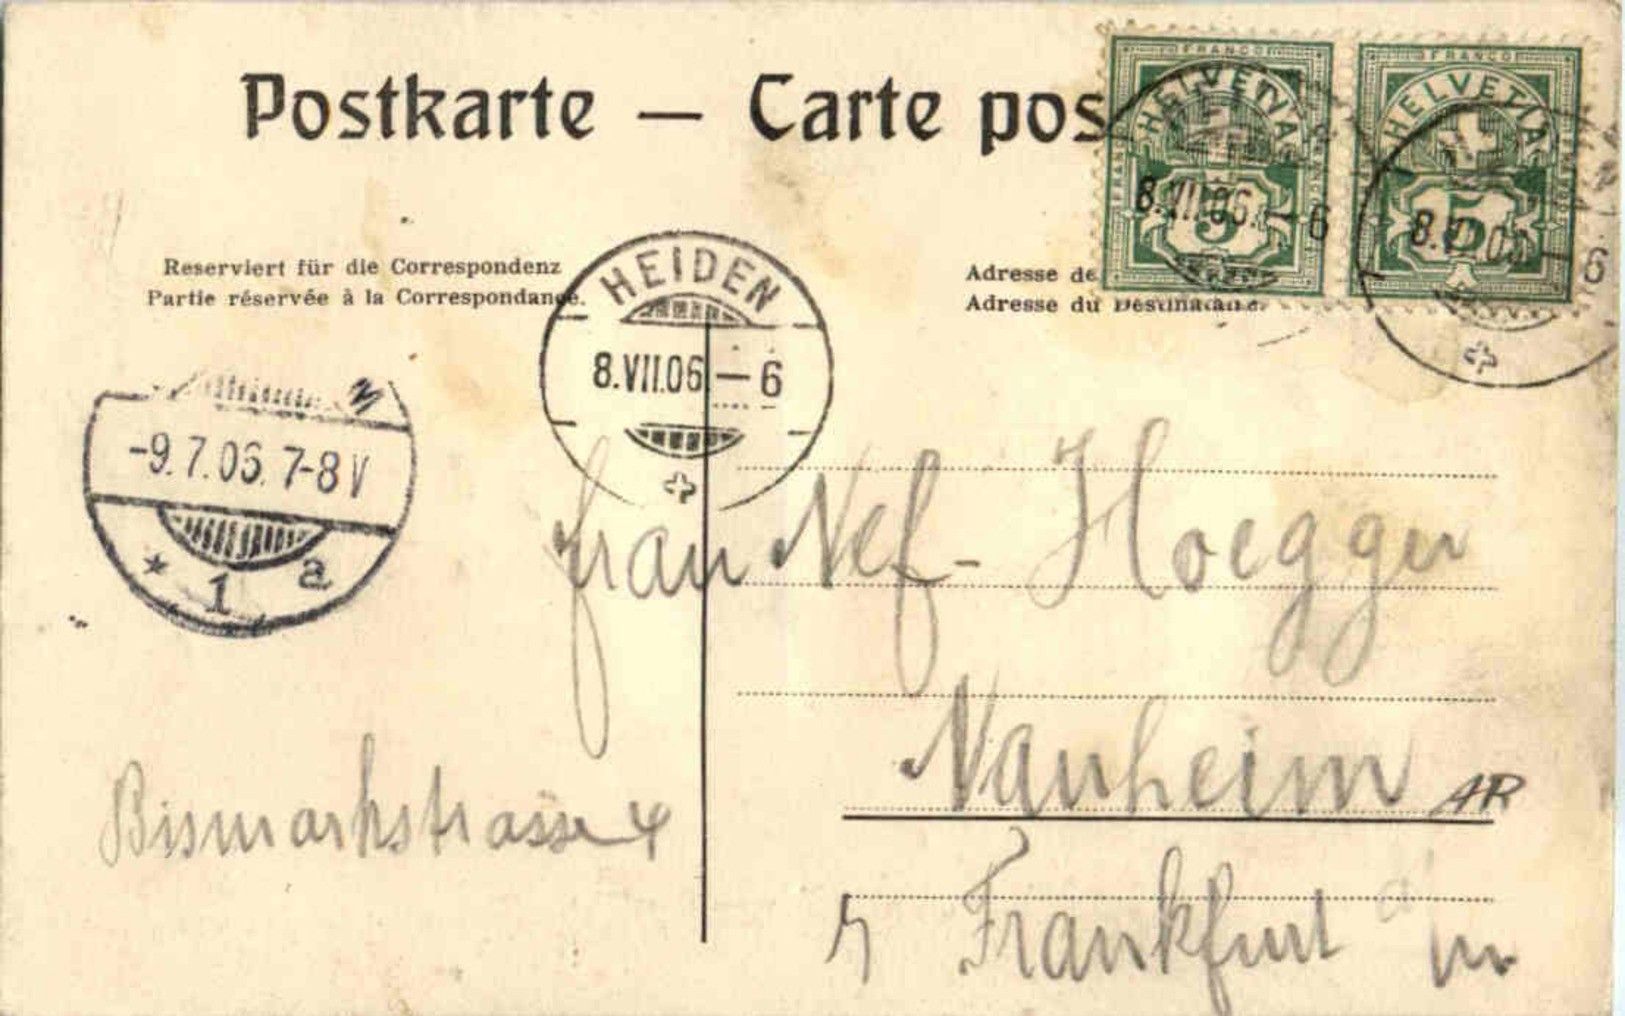 Postkarte — Carte pos
FRANCO
HELVETIA
8.VII.06.–6
5
FRANCO
HELVETIA
8.VII.06–6
5
Reserviert für die Correspondenz
Partie réservée à la Correspondance.
Adresse de
Adresse du Destinataire.
HEIDEN
8.VII.06–6
-9.7.06. 7-8V
* 1 a
Frau Nef-Hoegger
Nauheim
AR
Bismarkstrasse 4
Frankfurt a
m